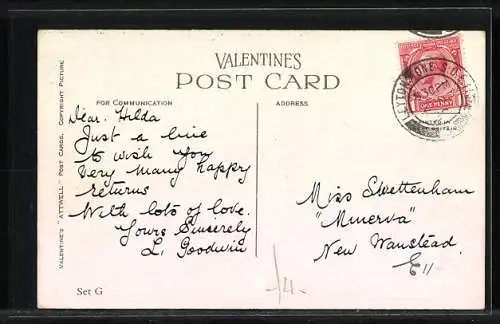 VALENTINES
POST CARD
FOR COMMUNICATION
ADDRESS
Dear Hilda
Just a line
to wish you
very many happy
returns
With lots of love.
Yours Sincerely
L. Goodwin
Miss Swettenham
"Minerva"
New Wanstead.
E11
Set G
VALENTINE'S "ATTWELL" POST CARDS. COPYRIGHT PICTURE
ONE PENNY
PRINTED IN
GREAT BRITAIN